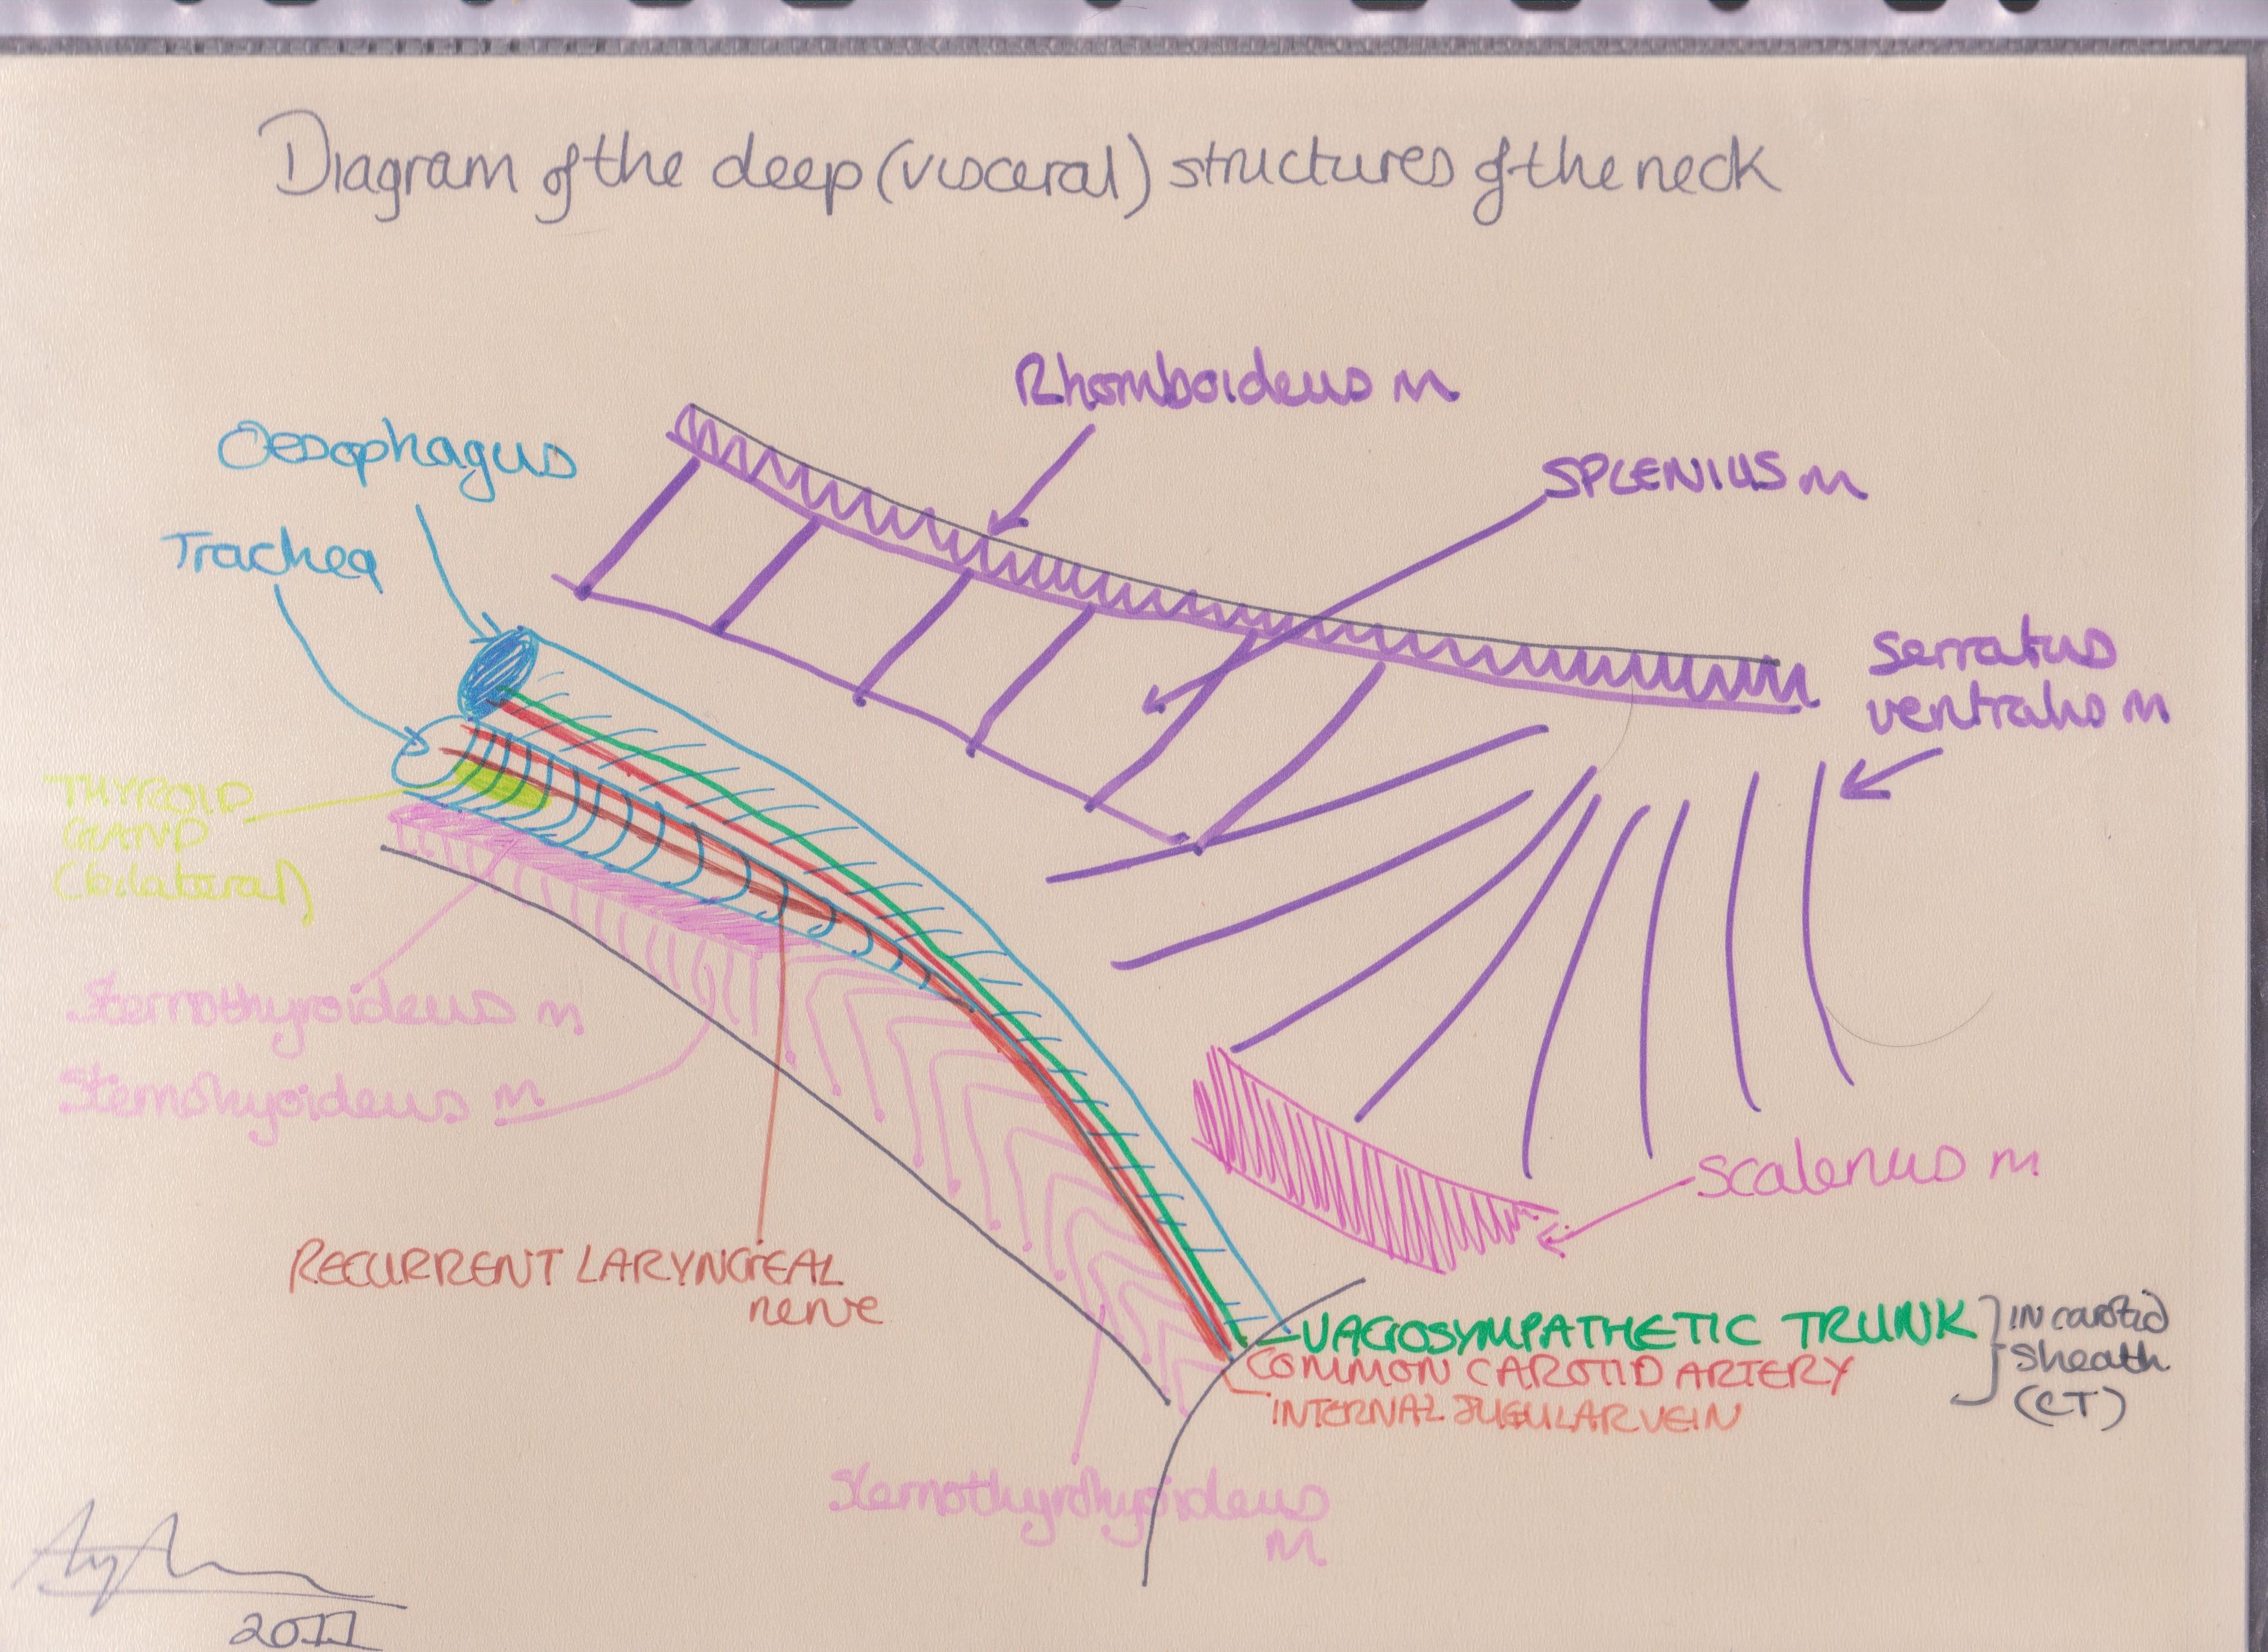 Diagram of the deep (visceral) structures of the neck
Rhomboideus m
Oesophagus
SPLENIUS m
Trachea
serratus
ventralis m
THYROID
GLAND
(bilateral)
Sternothyroideus m
Sternohyoideus m
scalenus m
RECURRENT LARYNGEAL
nerve
VAGOSYMPATHETIC TRUNK
COMMON CAROTID ARTERY
INTERNAL JUGULAR VEIN
IN carotid
sheath
(CT)
Sternothyrohyoideus
m
2011